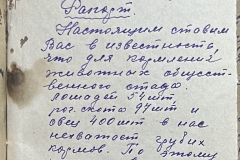 Рапорт
Настоящим ставим
Вас в известность,
что для кормления
животных общест-
венного стада
лошадей 54 шт
рог.скота 97 шт и
овец 400 шт в нас
нехватает грубых
кормов. По этому